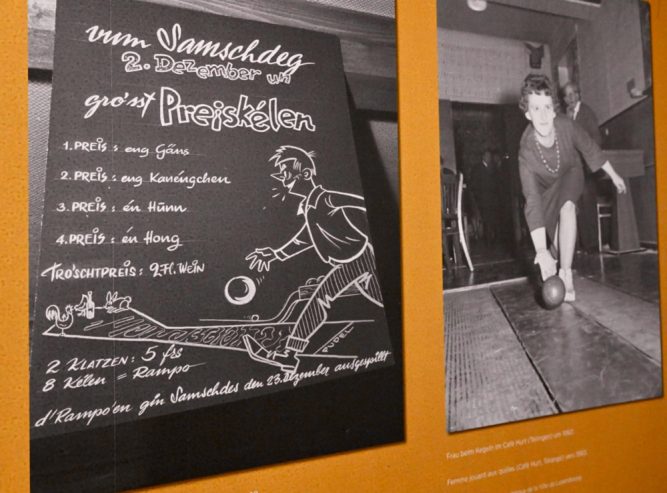 vum Samschdeg
2. Dezember un
gro'sst Preiskélen
1. PREIS : eng Gäns
2. PREIS : eng Kanéngchen
3. PREIS : én Hünn
4. PREIS : én Hong
TRO'SCHTPREIS : 2 Fl. WEIN
PUDEL
2 KLATZEN : 5 frs
8 Kélen = Rampo
d'Rampo'en gin Samschdes den 23. Dezember ausgespillt
Frau beim Kegeln im Café Hurt (Tétingen) um 1960.
Femme jouant aux quilles (Café Hurt, Tétange) vers 1960.
de la Ville de Luxembourg